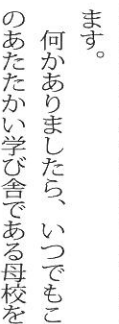 ます。
何かありましたら、いつでもこ
のあたたかい学び舎である母校を